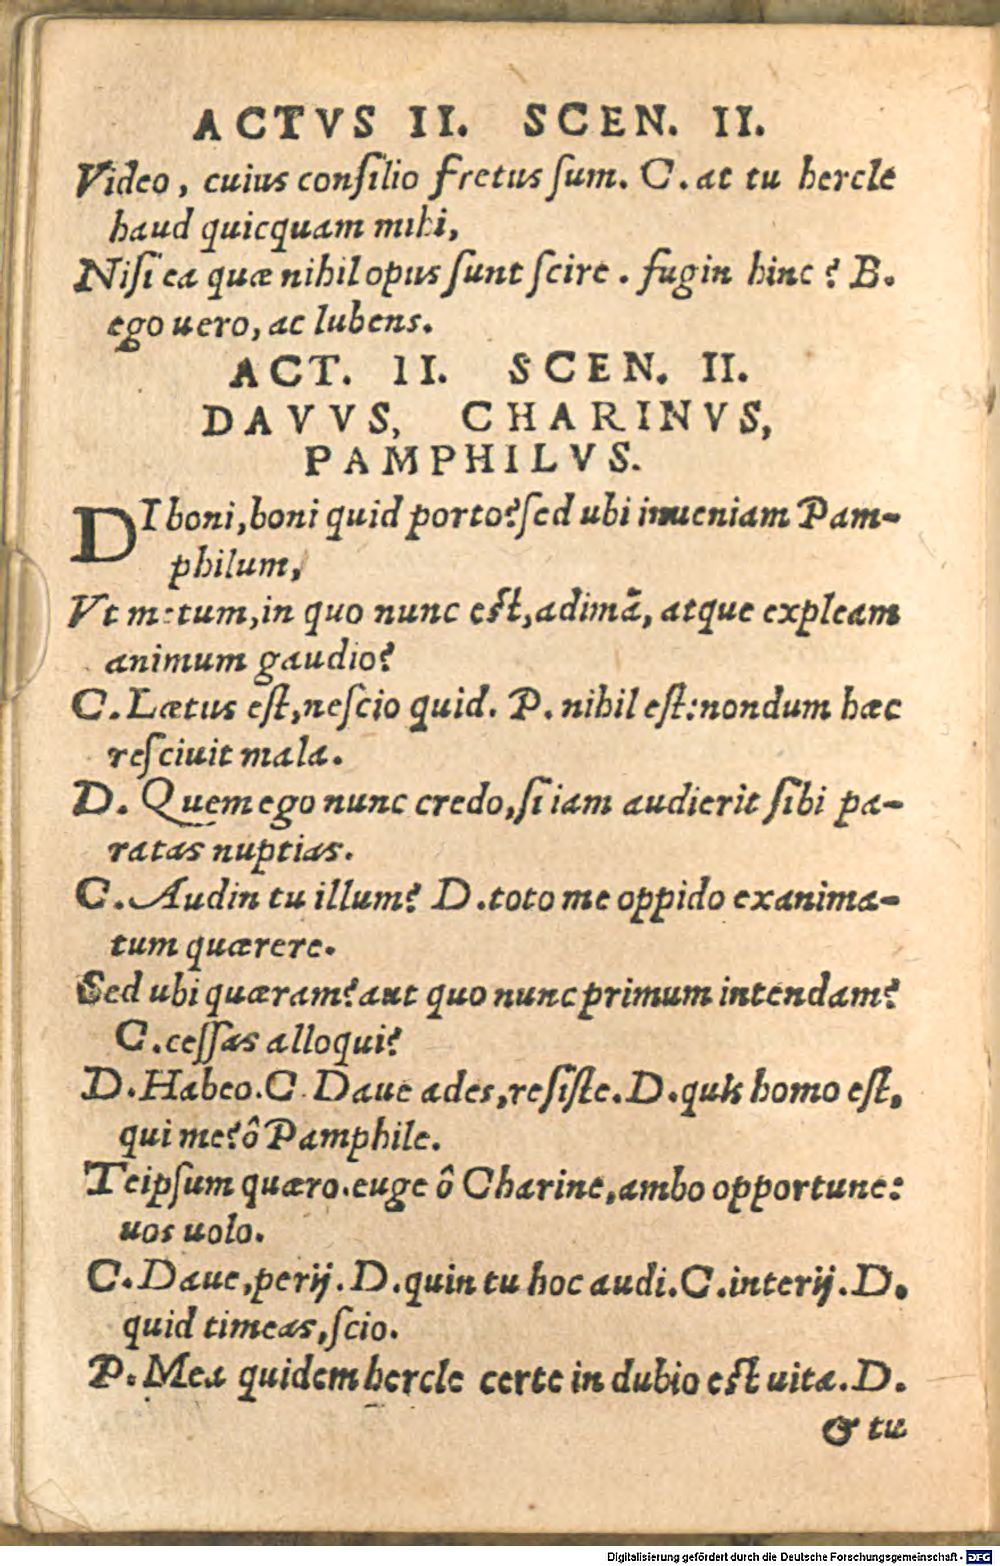 ACTVS II. SCEN. II.
Video, cuius conſilio fretus ſum. C. at tu hercle
haud quicquam mihi,
Niſi ea quæ nihil opus ſunt ſcire. fugin hinc? B.
ego uero, ac lubens.
ACT. II. SCEN. II.
DAVVS, CHARINVS,
PAMPHILVS.
DI boni, boni quid porto? ſed ubi inueniam Pam-
philum,
Vt metum, in quo nunc eſt, adimã, atque expleam
animum gaudio?
C. Lætus eſt, neſcio quid. P. nihil eſt: nondum hæc
reſciuit mala.
D. Quem ego nunc credo, ſi iam audierit ſibi pa-
ratas nuptias.
C. Audin tu illum? D. toto me oppido exanima-
tum quærere.
Sed ubi quæram? aut quo nunc primum intendam?
C. ceſſas alloqui?
D. Habeo. C. Daue ades, reſiſte. D. quis homo eſt,
qui me? ô Pamphile.
Teipſum quæro. euge ô Charine, ambo opportune:
uos uolo.
C. Daue, perij. D. quin tu hoc audi. C. interij. D.
quid timeas, ſcio.
P. Mea quidem hercle certe in dubio eſt uita. D.
& tu
Digitalisierung gefördert durch die Deutsche Forschungsgemeinschaft - DFG